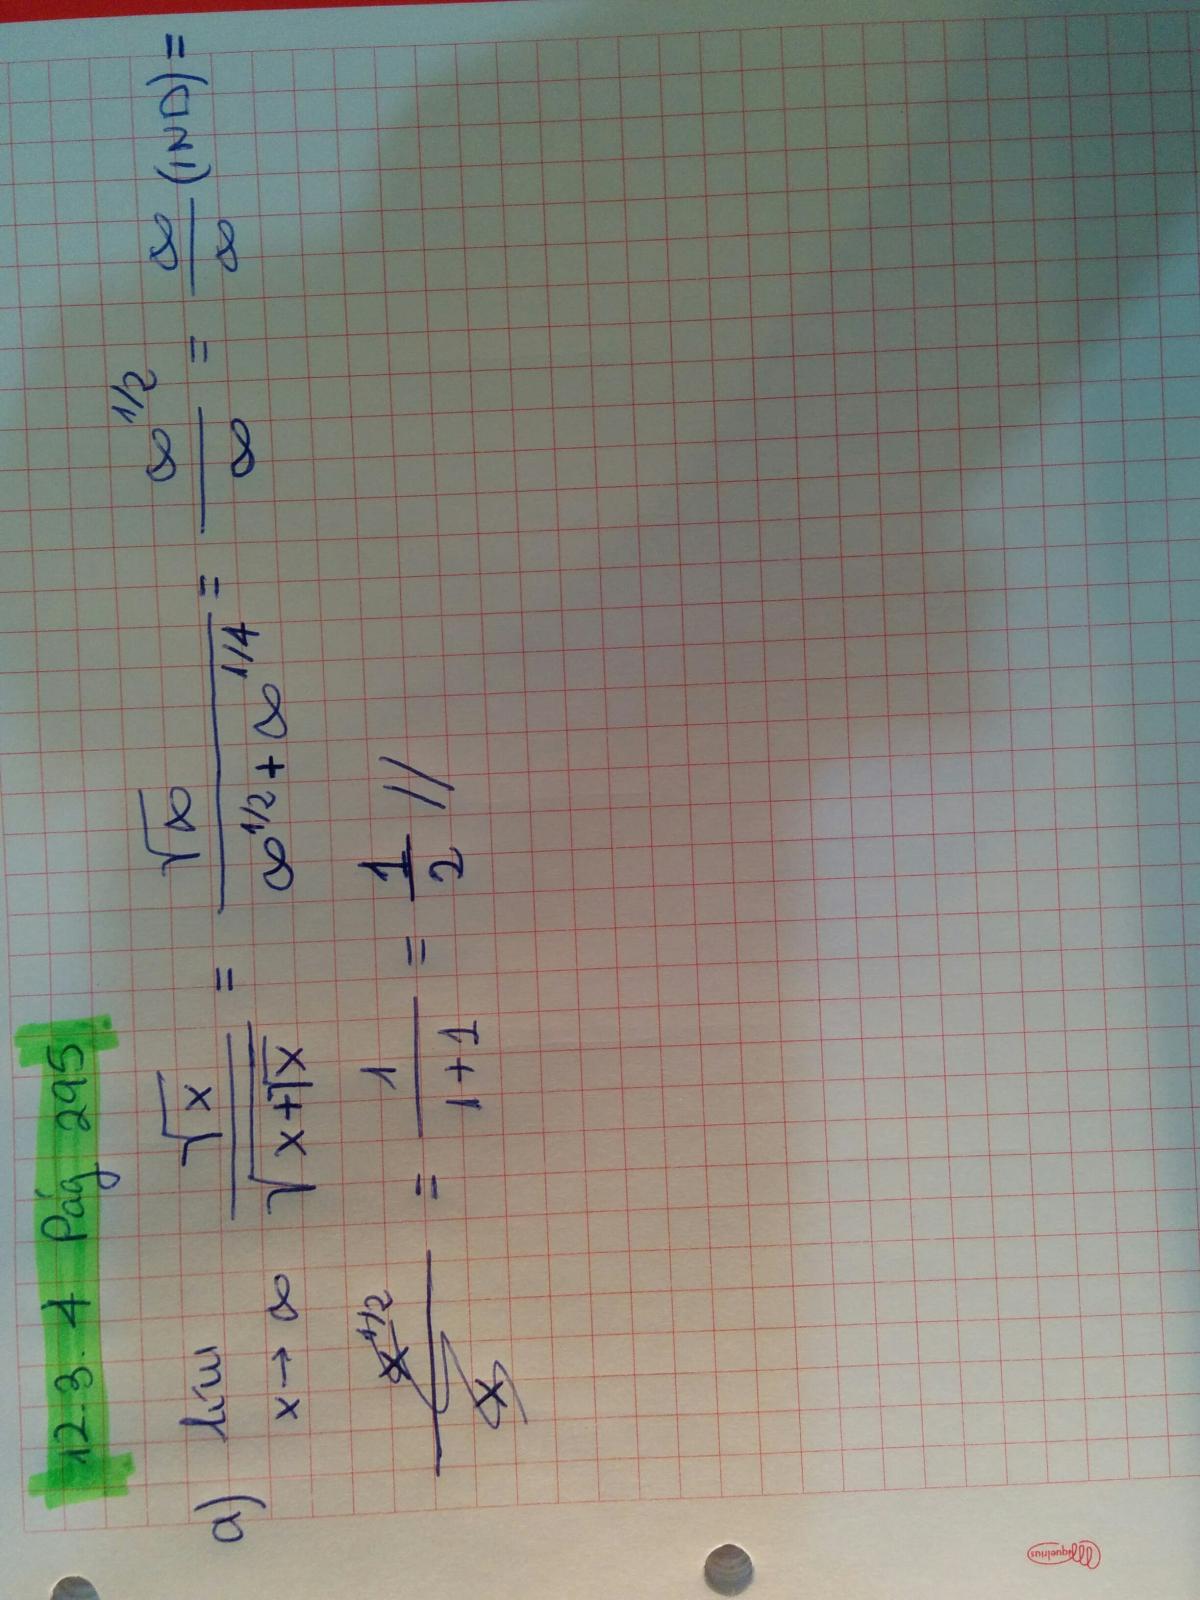 12.3.4 Pág 295
a) lím x→∞ √x / √(x+√x) = √∞ / ∞^1/2 + ∞^1/4 = ∞^1/2 / ∞ = ∞ / ∞ (IND) =
= 1 / 1+1 = 1 / 2 //
Miquelrius